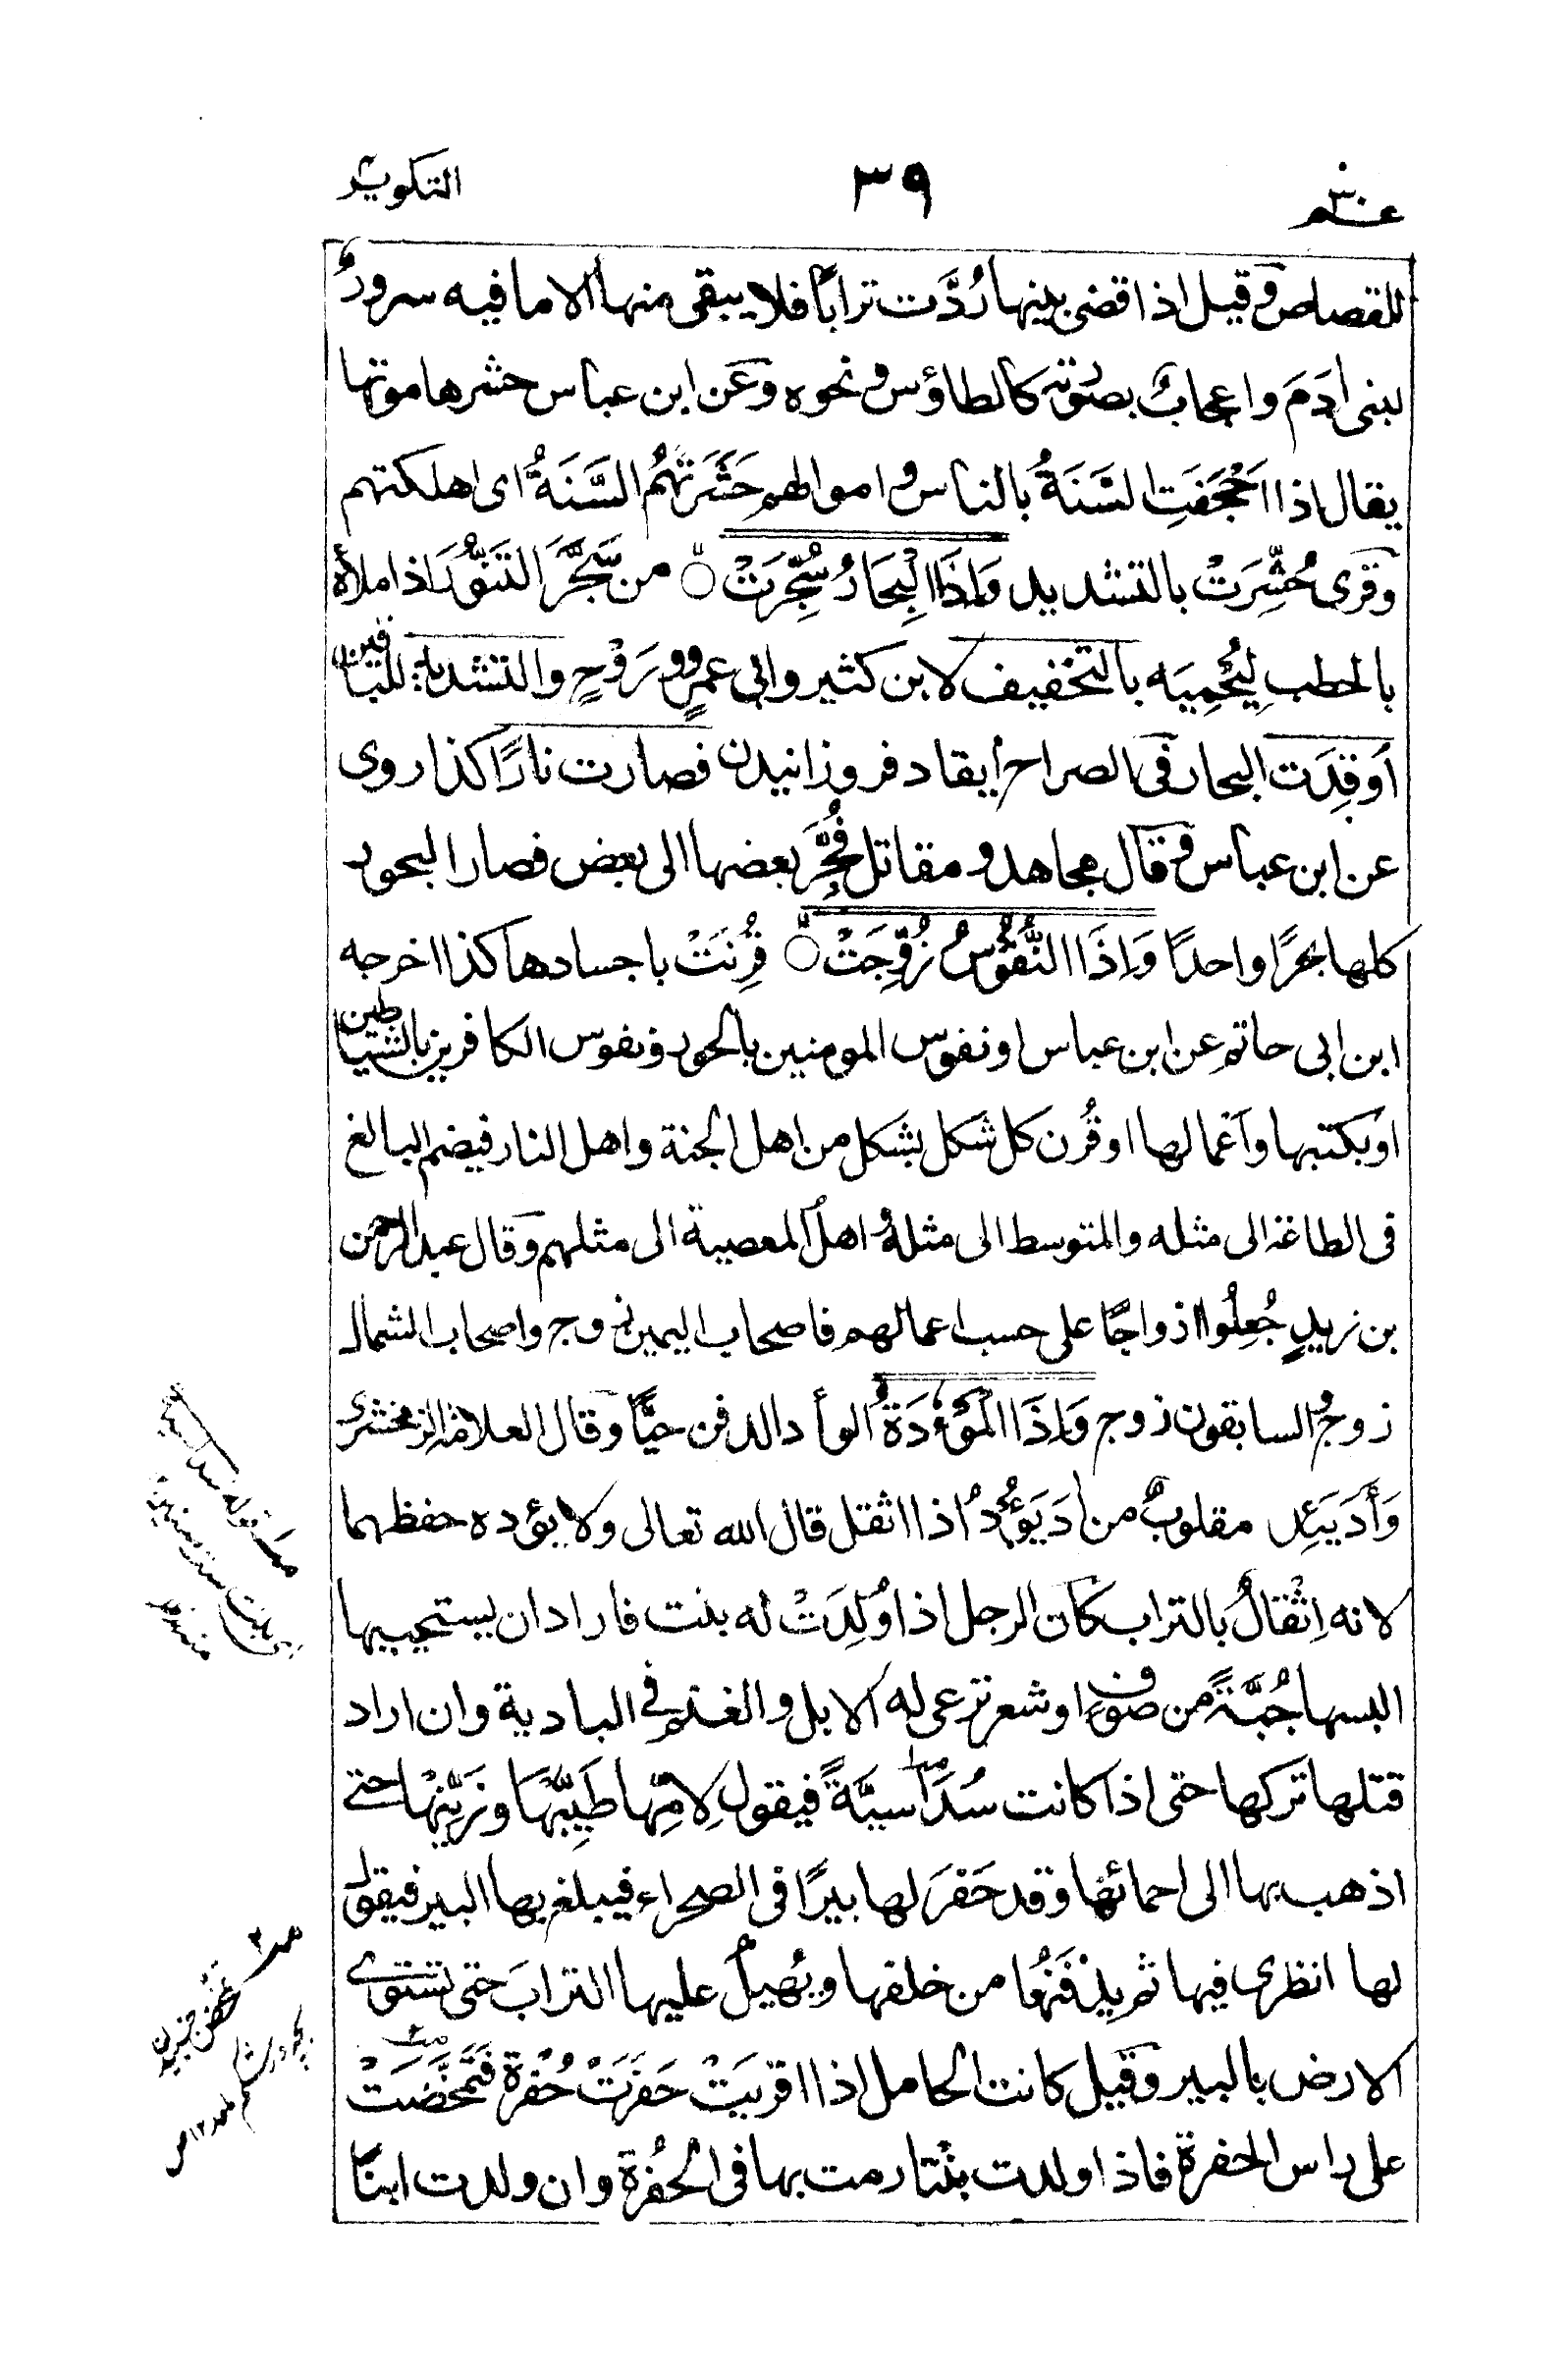 عم ٣٠ ٣٩ التكوير
للقصاص وقيل اذا قضى بينها رُدَّت ترابًا فلا يبقى منها الا ما فيه سرورٌ
لبنى اٰدَمَ واعجابٌ بصُوَرِه كالطاؤس ونحوه وعَن ابن عباس حشرها موتها
يقال اذا اَجْحَفَتِ السَّنَةُ بالناس و اموالهم حَشَرَتْهُم السَّنَةُ اى اهلكتهم
وقرى حُشِّرَتْ بالتشديد وَاِذَا الْبِحَارُ سُجِّرَتْ من سَجَّرَ التَنُّوْرَ اذا ملأه
بالحطب لِيُحْمِيَه بالتخفيف لابن كثير وابى عمرٍو ورَوْحٍ والتشديد للباقين
اَوقِدَت البحار فى الصراح ايقاد فروزانيدن فصارت نارًا كذا روى
عن ابن عباس وقال مجاهد و مقاتل فُجِّرَ بعضها الى بعض فصار البحور
كلها بحرًا واحدًا وَاِذَا النُّفُوْسُ زُوِّجَتْ قُرِنَتْ باجسادها كذا اخرجه
ابن ابى حاتم عن ابن عباس او نفوس المومنين بالحور ونفوس الكافرين بالشياطين
او بكتبها واَعمالها او قُرن كل شكل بشكل من اهل الجنة واهل النار فيضم البالغ
فى الطاعة الى مثله والمتوسط الى مثله واهل المعصية الى مثلهم وقال عبد الرحمن
بن زيدٍ جُعِلُوا ازواجًا على حسب اعمالهم فاصحاب اليمين زوج واصحاب الشمال
زوجٌ السابقون زوج وَاِذَا الْمَوْءٗدَةُ الوأد الدفن حيًّا وقال العلامة الزمخشرى
وَأَدَ يَئِد مقلوبٌ من اٰدَ يَؤُدُ اذا اثقل قال الله تعالى ولا يؤده حفظهما
لانه اِثْقالٌ بالتراب كان الرجل اذا وُلِدَتْ له بنت فاراد ان يستحييها
البسها جُبَّةً من صُوفٍ او شعر ترعى له الابل والغنم فى البادية وان اراد
قتلها تركها حتى اذا كانت سُدَاسيَّةً فيقول لِامِّها طَيِّبِيْهَا وزَيِّنِيْهَا حتى
اذهب بها الى احمائها وقد حَفَرَ لها بيرًا فى الصحراء فيبلغ بها البير فيقول
لها انظرى فيها ثم يدفَعُها من خلفها ويُهيلُ عليها الترابَ حتى تستوى
الارض بالبير وقيل كانت الحامل اذا اقربَتْ حَفَرَتْ حُفرة فَتَمَخَّضَتْ
على راس الحفرة فاذا ولدت بنتا رمت بها فى الحُفرة وان ولدت ابنًا